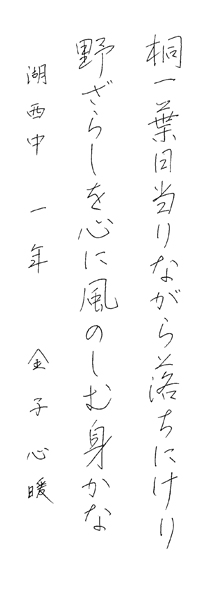 桐一葉日当りながら落ちにけり
野ざらしを心に風のしむ身かな
湖西中 一年 金子心暖